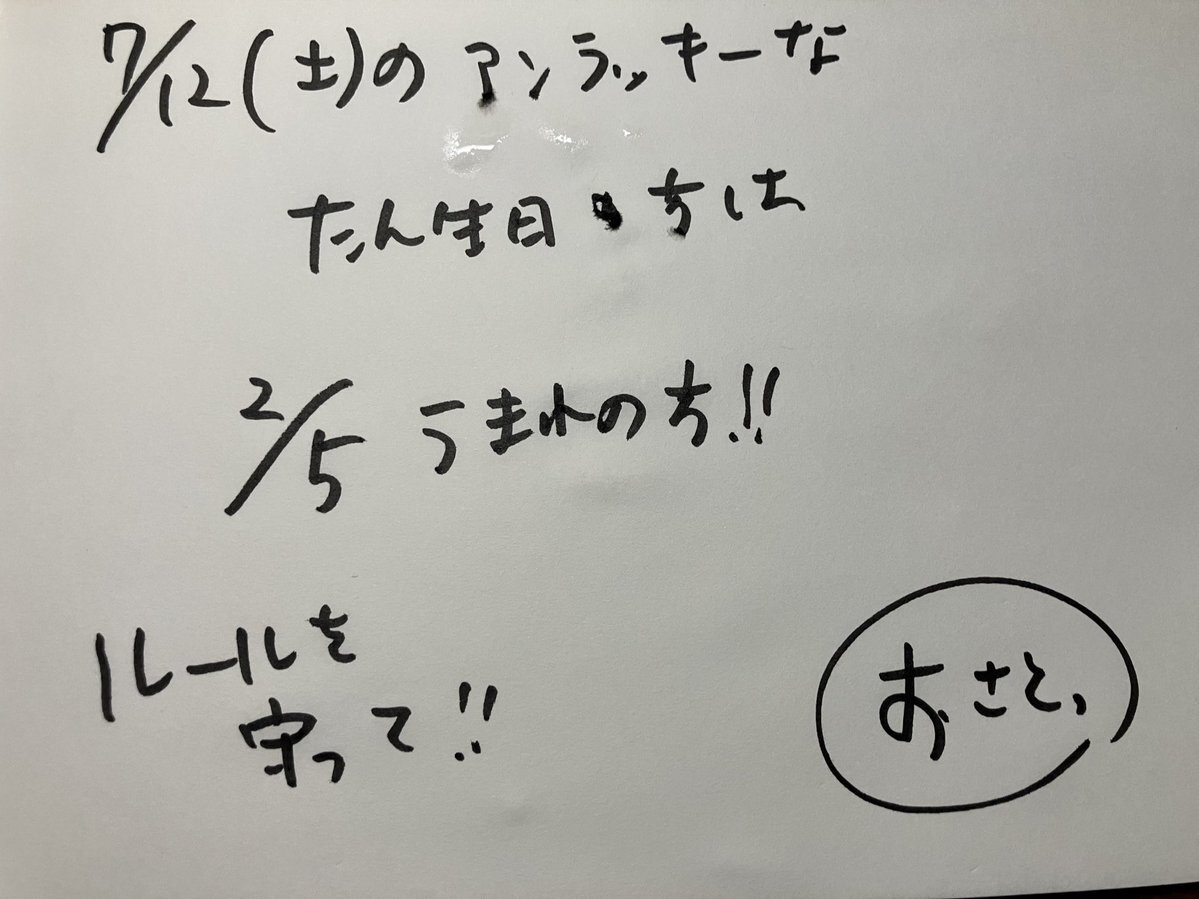 7/12(土)のアンラッキーな
たん生日の方は
2/5 うまれの方!!
ルールを
守って!!
おさと、